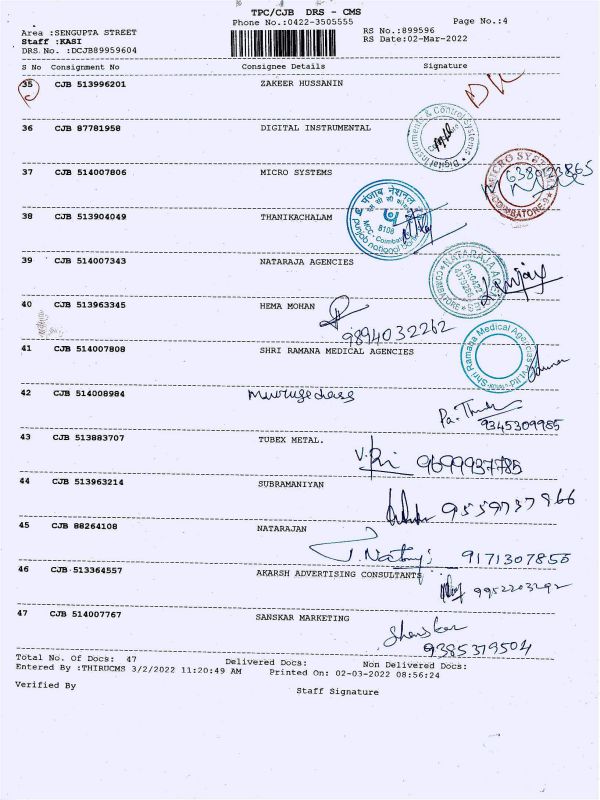 TPC/CJB DRS - CMS
Phone No.:0422-3505555
Page No.:4
Area :SENGUPTA STREET
RS No.:899596
Staff :KASI
RS Date:02-Mar-2022
DRS No. :DCJB89959604
S No Consignment No Consignee Details Signature
35 CJB 513996201 ZAKEER HUSSANIN
36 CJB 87781958 DIGITAL INSTRUMENTAL
Digital Instruments & Control Systems
37 CJB 514007806 MICRO SYSTEMS
MICRO SYSTEMS COIMBATORE-9
6380723865
38 CJB 513904049 THANIKACHALAM
पंजाब नैशनल
8108
MCC - Coimbatore
punjab national bank
39 CJB 514007343 NATARAJA AGENCIES
NATARAJA AGENCIES
COIMBATORE
40 CJB 513963345 HEMA MOHAN
9894032262
41 CJB 514007808 SHRI RAMANA MEDICAL AGENCIES
Shri Ramana Medical Agencies Pvt.Ltd
42 CJB 514008984 Murugedass
9345309985
43 CJB 513883707 TUBEX METAL.
9699937785
44 CJB 513963214 SUBRAMANIYAN
9559737966
45 CJB 88264108 NATARAJAN
9171307855
46 CJB 513364557 AKARSH ADVERTISING CONSULTANTS
9952203292
47 CJB 514007767 SANSKAR MARKETING
9385379504
Total No. Of Docs: 47 Delivered Docs: Non Delivered Docs:
Entered By :THIRUCMS 3/2/2022 11:20:49 AM Printed On: 02-03-2022 08:56:24
Verified By
Staff Signature